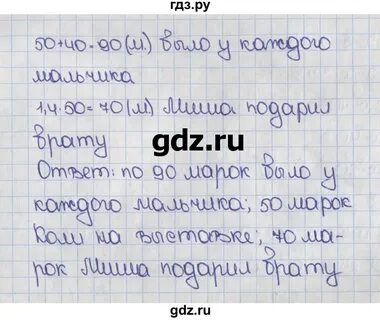 гдз.ру
50+40=90(м.) было у каждого
мальчика
1,4·50=70(м) Миша подарил
брату
gdz.ru
Ответ: по 90 марок было у
каждого мальчика; 50 марок
Коли на выставке; 70 ма-
рок Миша подарил брату
gdz.ru